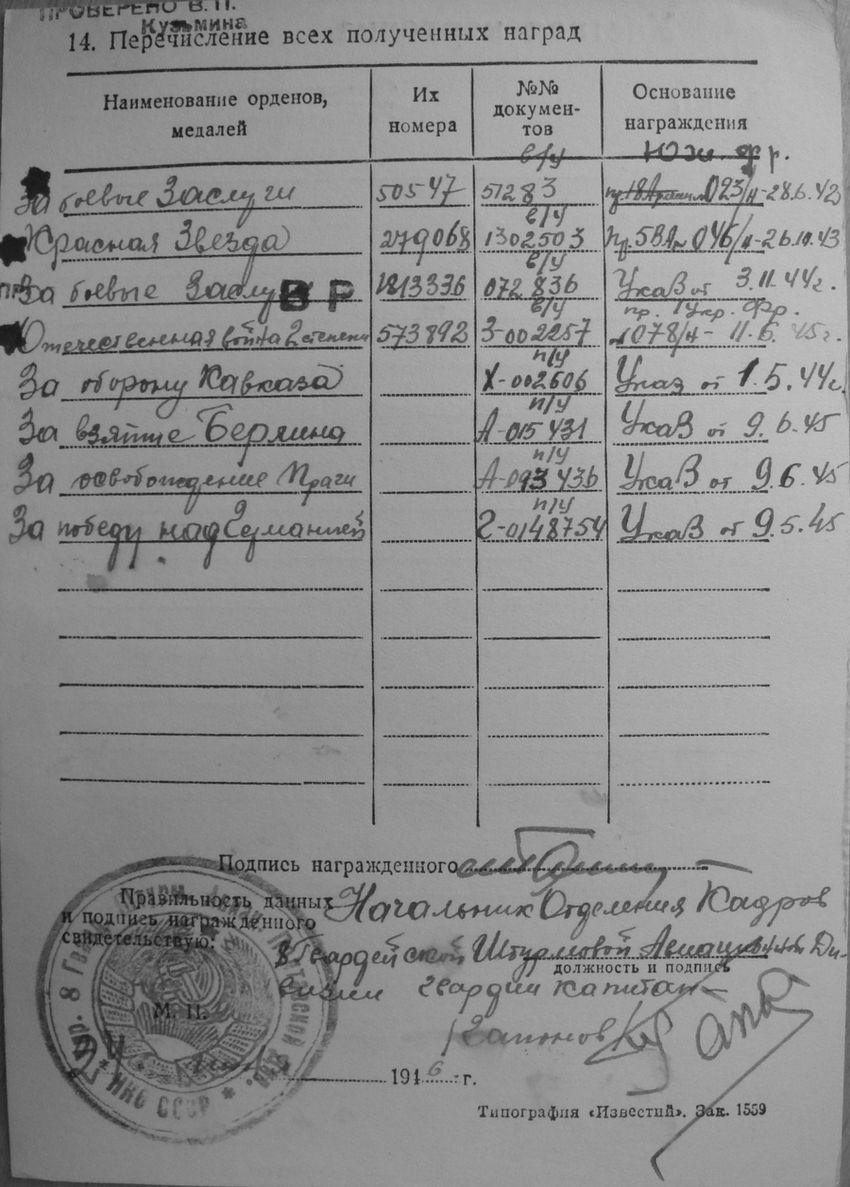 ПРОВЕРЕНО В. П.
Кузьмина
14. Перечисление всех полученных наград
Наименование орденов, медалей
Их номера
№№ докумен- тов
Основание награждения
в/у Юж. фр.
За боевые Заслуги 50547 51283 023/н-28.6.42
в/у
Красная Звезда 279068 1302503 Пр. 5ВА 046/н-26.10.43
в/у
За боевые Заслу ВР 1813336 072836 Указ от 3.11.44г.
в/у пр. 1 Укр. Фр.
Отечественная война 2 степени 573892 З-002257 078/н- 11.6.45г.
п/у
За оборону Кавказа Х-002606 Указ от 1.5.44г.
п/у
За взятие Берлина А-015431 Указ от 9.6.45
п/у
За освобождение Праги А-093436 Указ от 9.6.45
п/у
За победу над Германией 2-0148754 Указ от 9.5.45
Подпись награжденного
Правильность данных
и подпись награжденного
свидетельствую:
Начальник Отделения Кадров
8 Гвардейской Штурмовой Авиационной Ди-
должность и подпись
визии гвардии капитан-
М. П.
/Гапонов/
1946 г.
НКО СССР
Типография «Известий». Зак. 1559